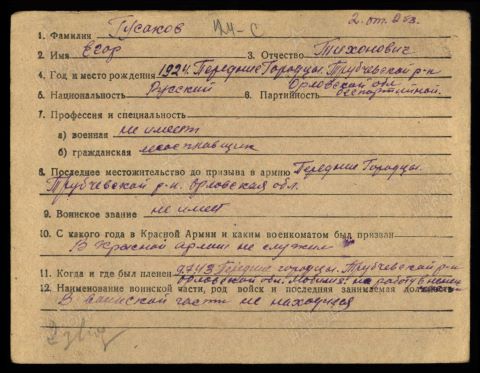 2. от.Ояз.
1. Фамилия Гусаков 124-С
2. Имя Егор 3. Отчество Тихонович
4. Год и место рождения 1924 Передние Городцы. Трубчевской р-н
Орловской обл.
5. Национальность Русский 6. Партийность беспартийной.
7. Профессия и специальность
а) военная не имеет
б) гражданская
8. Последнее местожительство до призыва в армию Передние Городцы.
Трубчевской р-н. Орловская обл.
9. Воинское звание не имеет
10. С какого года в Красной Армии и каким военкоматом был призван
В Красной армии не служил
11. Когда и где был пленен Передние городцы. Трубчевской р-н
Орловской обл. на работу в
12. Наименование воинской части, род войск и последняя занимаемая должность
В воинской части не находился